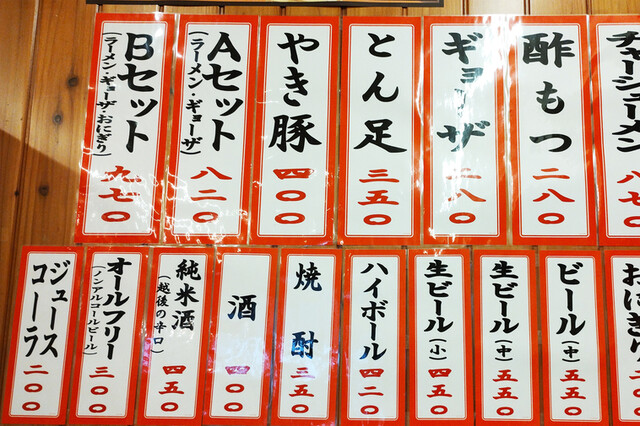 チャーシューメン
八七〇
酢もつ
二八〇
ギョーザ
二八〇
とん足
三五〇
やき豚
四〇〇
Aセット
(ラーメン・ギョーザ)
八二〇
Bセット
(ラーメン・ギョーザ・おにぎり)
九七〇
おにぎり
ビール(中)
五五〇
生ビール(中)
五五〇
生ビール(小)
四五〇
ハイボール
四二〇
焼酎
三〇〇
酒
四〇〇
純米酒
(越後の辛口)
四五〇
オールフリー
(ノンアルコールビール)
三〇〇
ジュース
コーラ
二〇〇